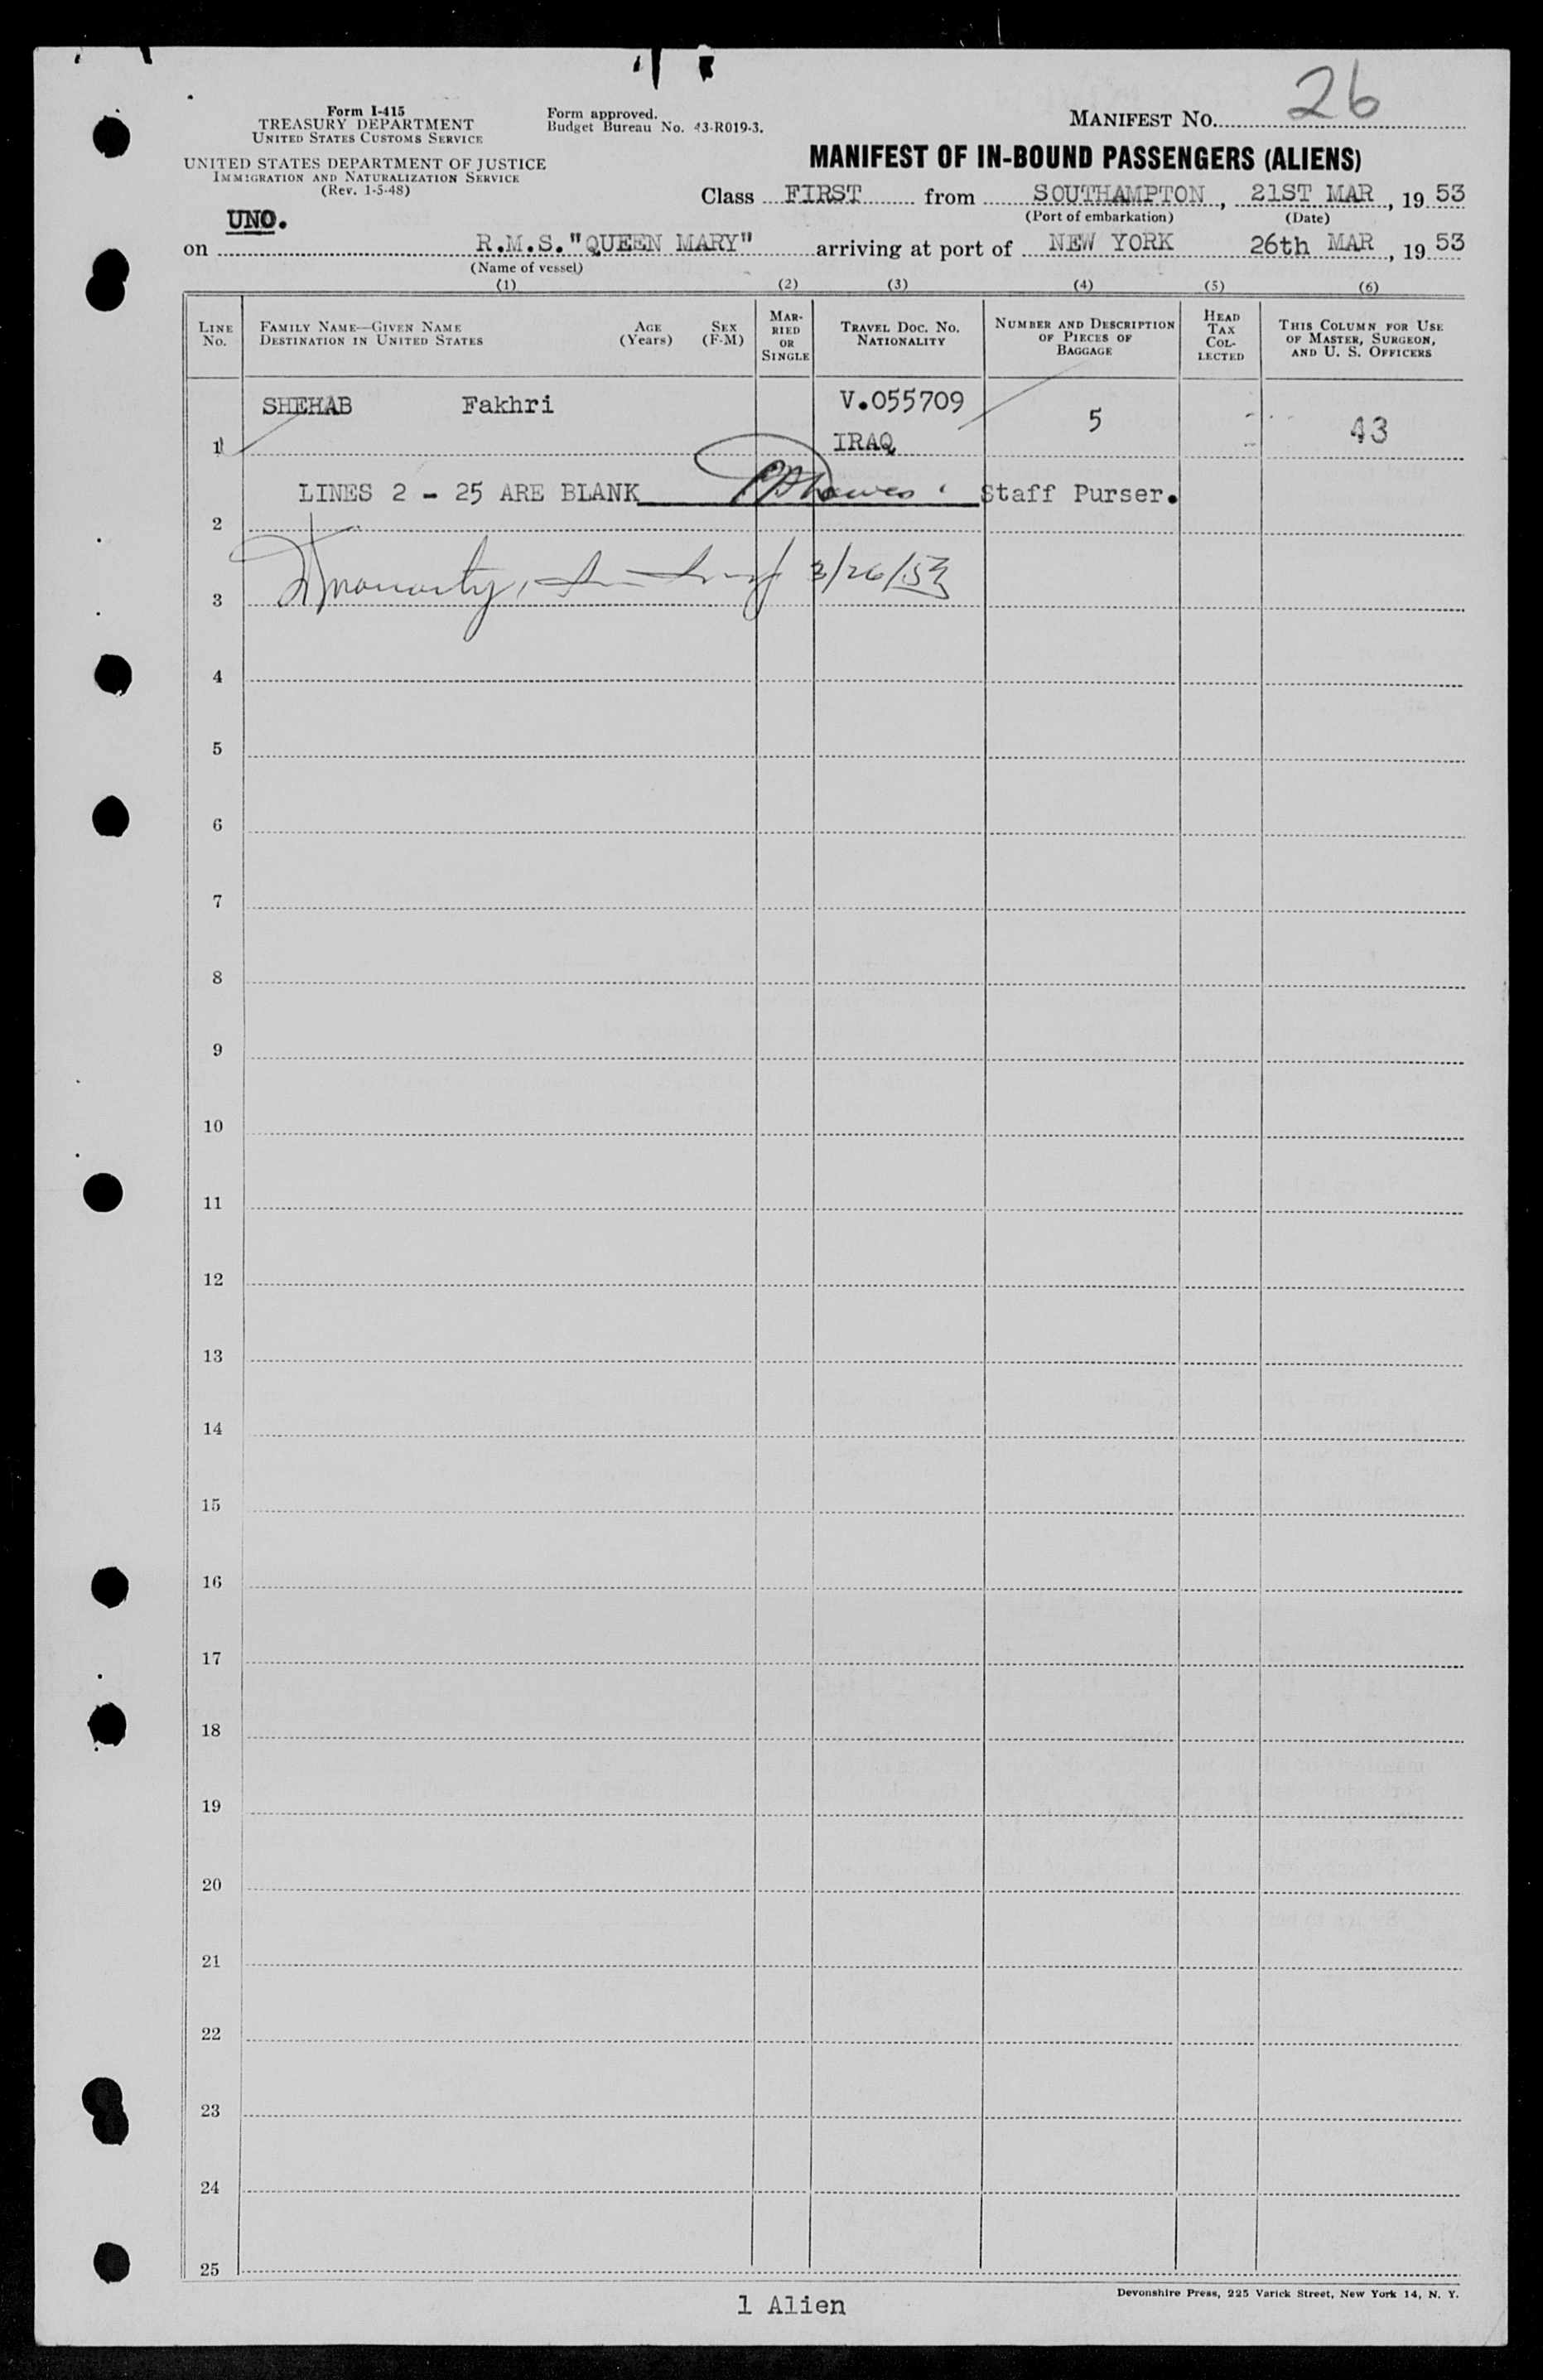 26
Form I-415
TREASURY DEPARTMENT
UNITED STATES CUSTOMS SERVICE
Form approved.
Budget Bureau No. 43-R019-3.
MANIFEST NO.
UNITED STATES DEPARTMENT OF JUSTICE
IMMIGRATION AND NATURALIZATION SERVICE
(Rev. 1-5-48)
MANIFEST OF IN-BOUND PASSENGERS (ALIENS)
Class FIRST from SOUTHAMPTON, 21ST MAR, 19 53
(Port of embarkation) (Date)
UNO.
on R.M.S."QUEEN MARY" arriving at port of NEW YORK 26th MAR, 19 53
(Name of vessel)
(1) (2) (3) (4) (5) (6)
LINE No.
FAMILY NAME—GIVEN NAME
DESTINATION IN UNITED STATES
AGE (Years)
SEX (F-M)
MARRIED OR SINGLE
TRAVEL DOC. NO.
NATIONALITY
NUMBER AND DESCRIPTION OF PIECES OF BAGGAGE
HEAD TAX COLLECTED
THIS COLUMN FOR USE OF MASTER, SURGEON, AND U. S. OFFICERS
SHEHAB Fakhri V.055709 5 43
1 IRAQ
LINES 2 - 25 ARE BLANK Staff Purser.
2
3/26/53
3
4
5
6
7
8
9
10
11
12
13
14
15
16
17
18
19
20
21
22
23
24
25
1 Alien
Devonshire Press, 225 Varick Street, New York 14, N. Y.